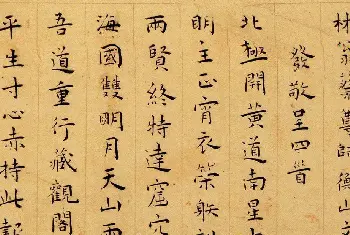 林蔡師衡山
發敬呈四首
北極開黃道南星
明主正宵衣
兩賢終特達窟穴
海國雙明月天山
吾道重行藏觀閣
平生寸心赤持此報